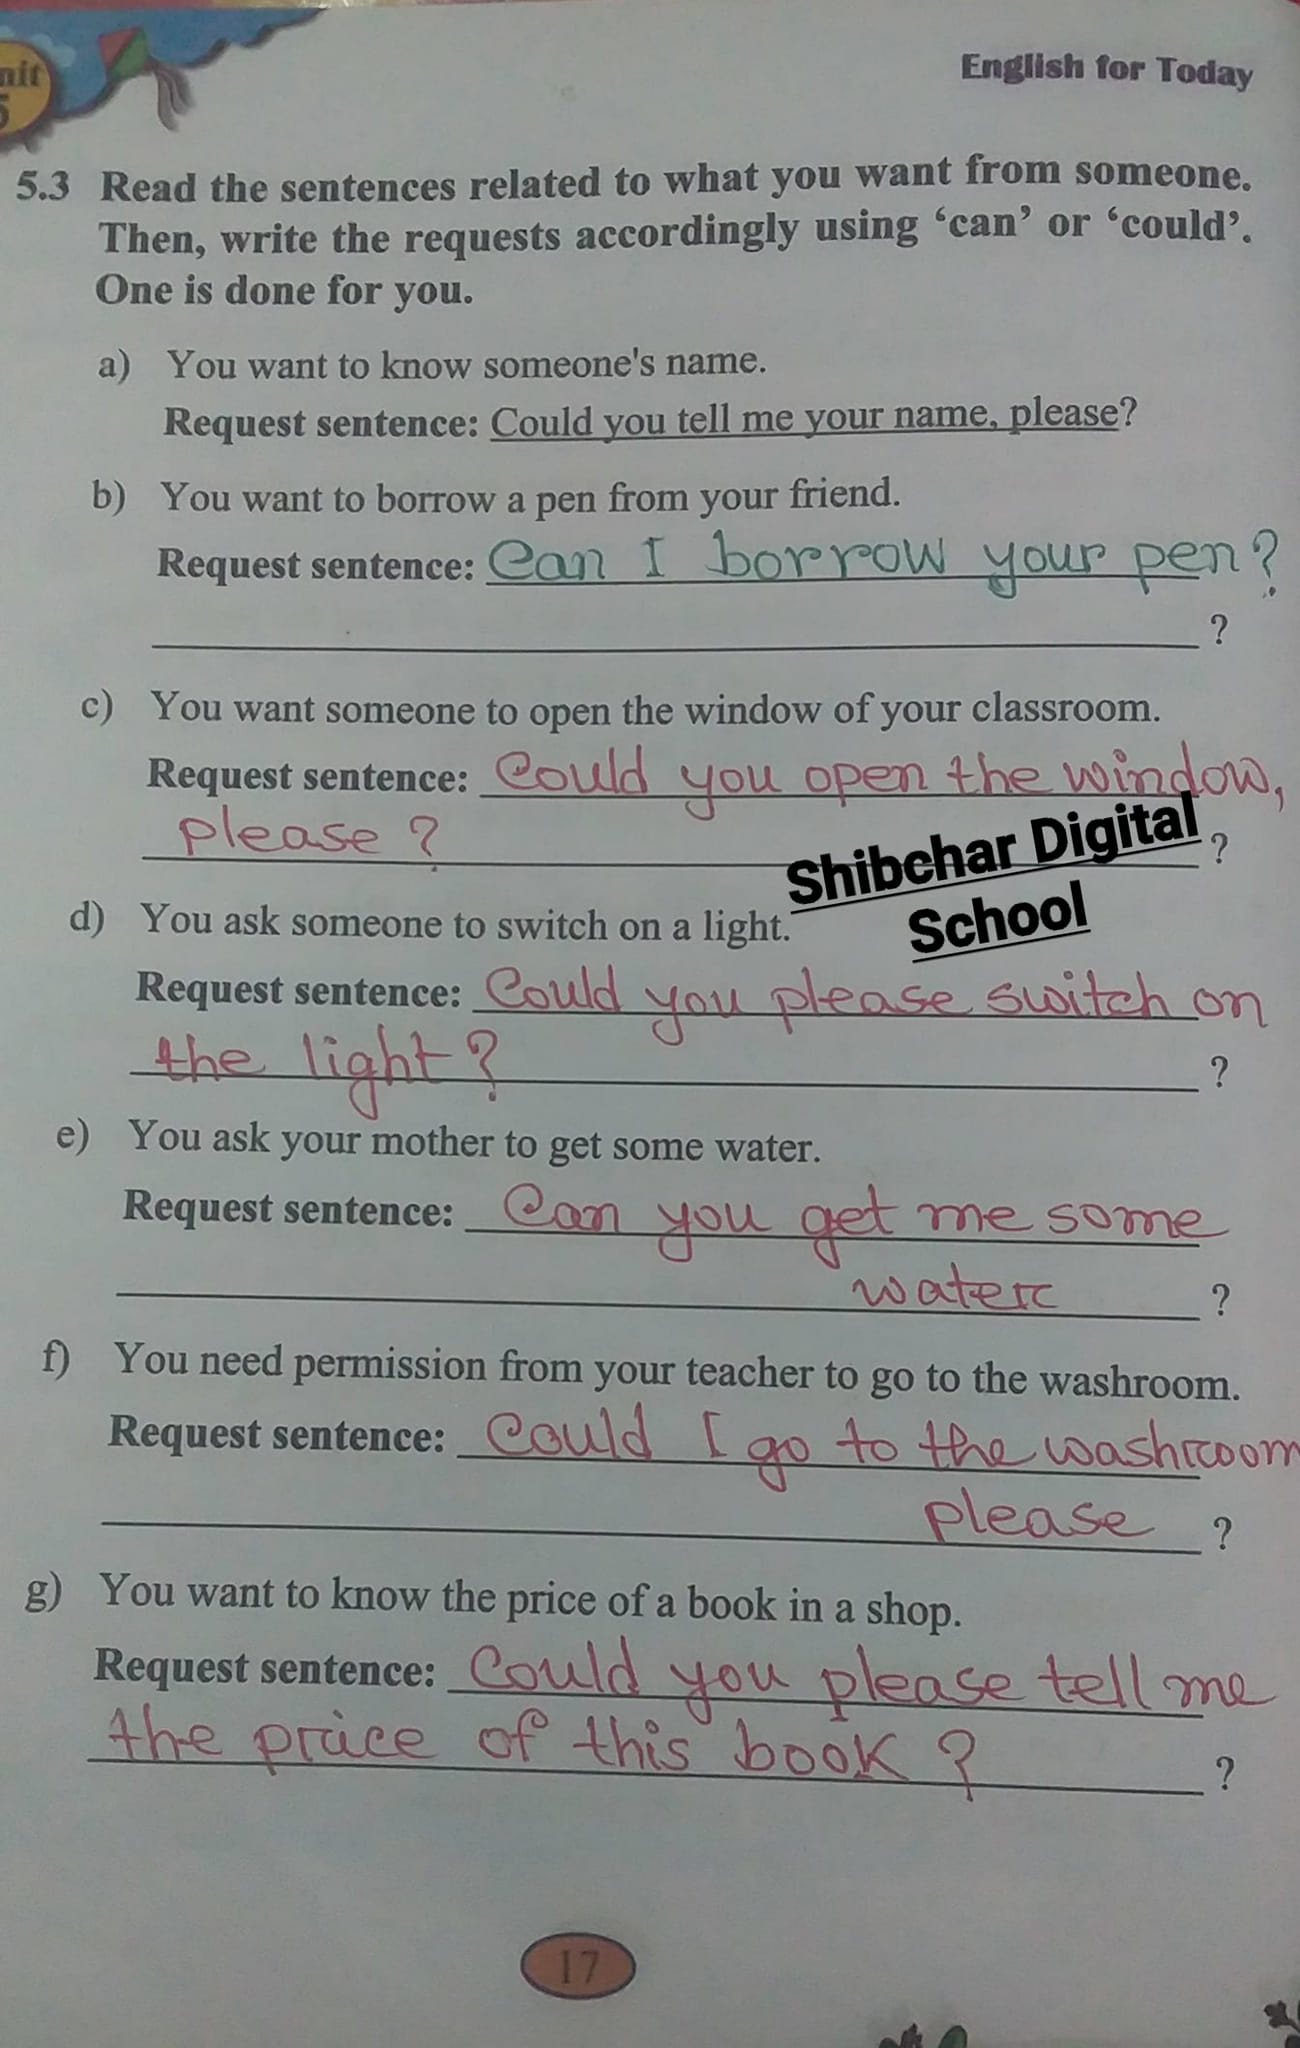 English for Today
5.3 Read the sentences related to what you want from someone.
Then, write the requests accordingly using ‘can’ or ‘could’.
One is done for you.
a) You want to know someone's name.
Request sentence: Could you tell me your name, please?
b) You want to borrow a pen from your friend.
Request sentence: Can I borrow your pen?
?
c) You want someone to open the window of your classroom.
Request sentence: Could you open the window,
please? ?
Shibchar Digital
School
d) You ask someone to switch on a light.
Request sentence: Could you please switch on
the light? ?
e) You ask your mother to get some water.
Request sentence: Can you get me some
water ?
f) You need permission from your teacher to go to the washroom.
Request sentence: Could I go to the washroom
please ?
g) You want to know the price of a book in a shop.
Request sentence: Could you please tell me
the price of this book? ?
17